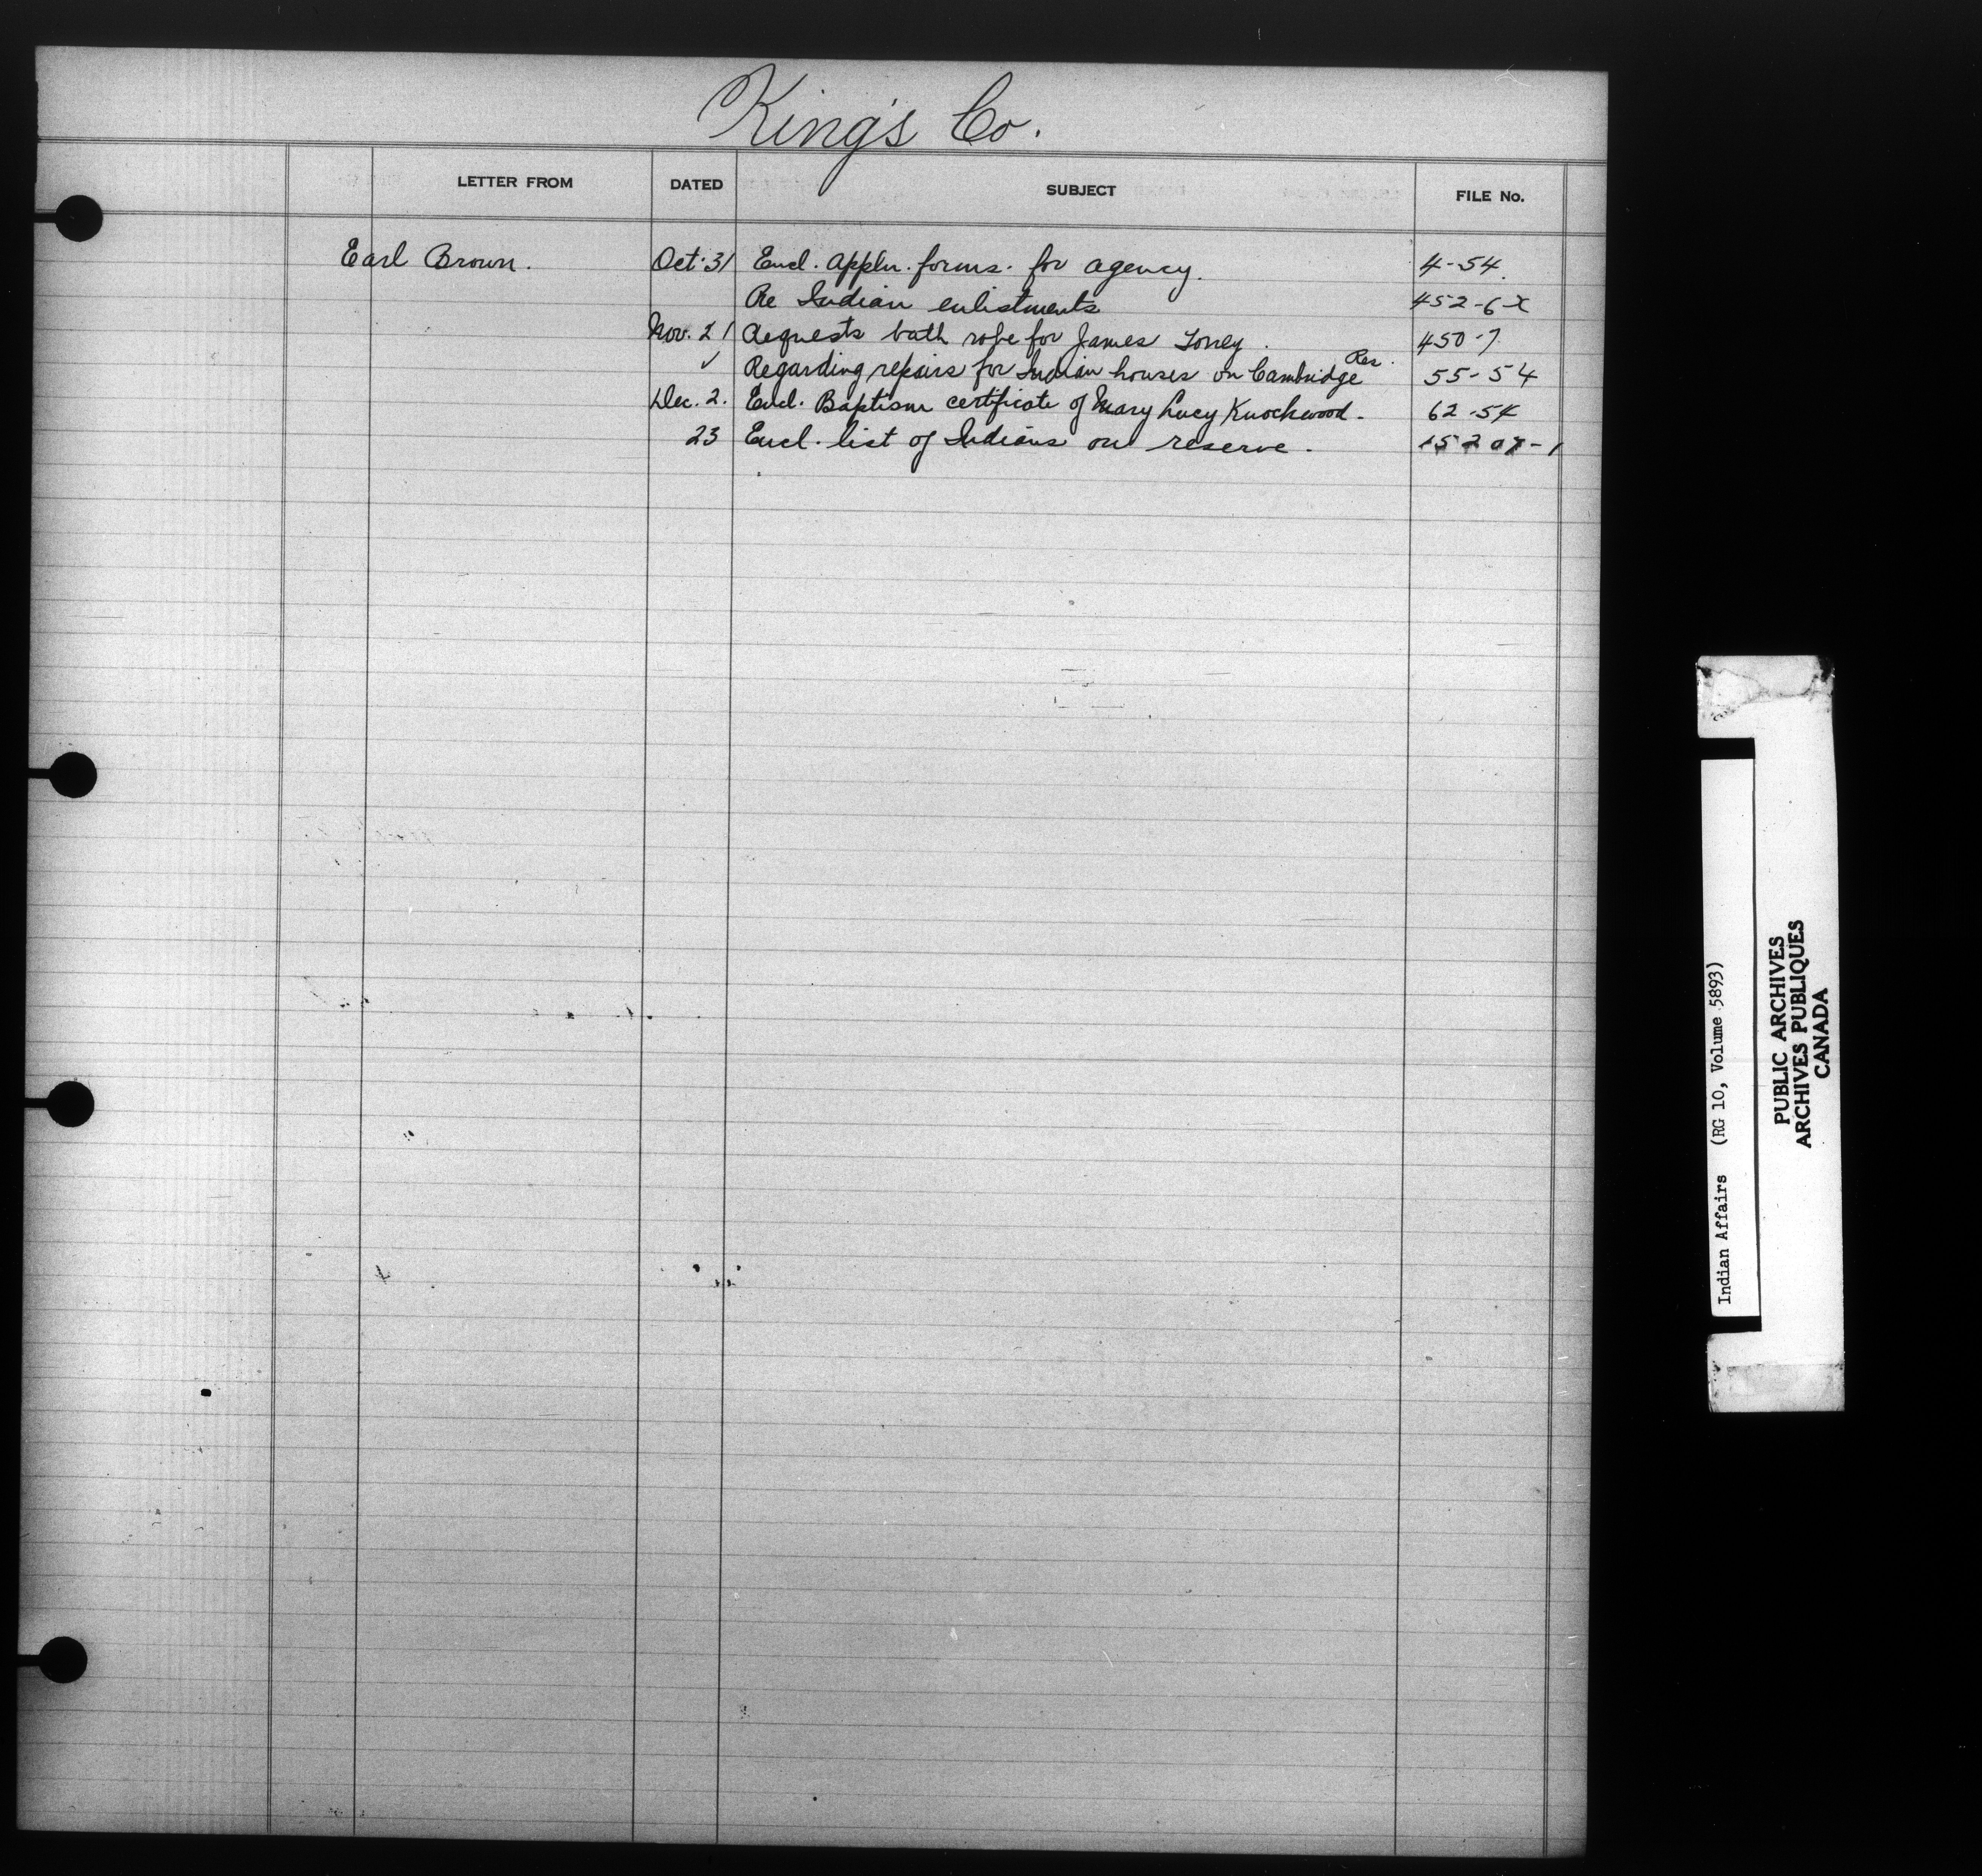 King's Co.
LETTER FROM DATED SUBJECT FILE No.
Earl Brown. Oct. 31 Encl. appln. forms. for agency. 4-54.
Re Indian enlistments 452-6-X
Nov. 21 Requests bath robe for James Toney. 450-7.
✓ Regarding repairs for Indian houses on Cambridge Res. 55-54
Dec. 2. Encl. Baptism certificate of Mary Lucy Knockwood. 62-54
23 Encl. list of Indians on reserve.
Indian Affairs (RG 10, Volume 5893)
PUBLIC ARCHIVES
ARCHIVES PUBLIQUES
CANADA